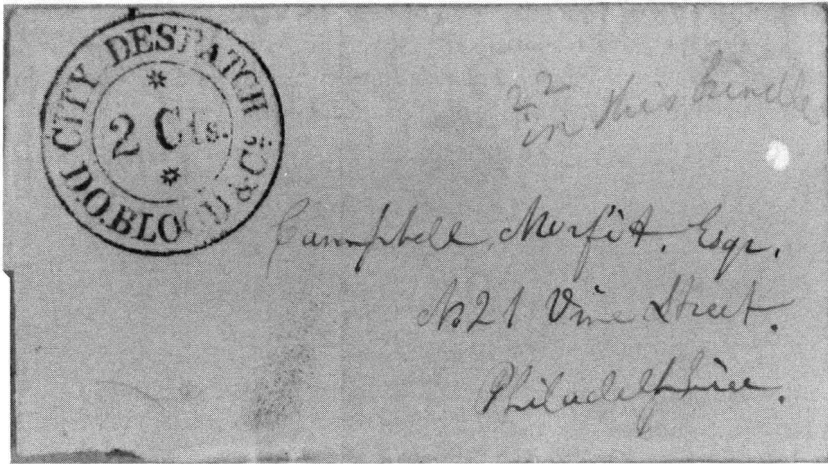 CITY DESPATCH
2 Cts.
D.O.BLOOD & Co.
22
in this bundle
Campbell Morfit. Esqr.
No 21 Vine Street.
Philadelphia.